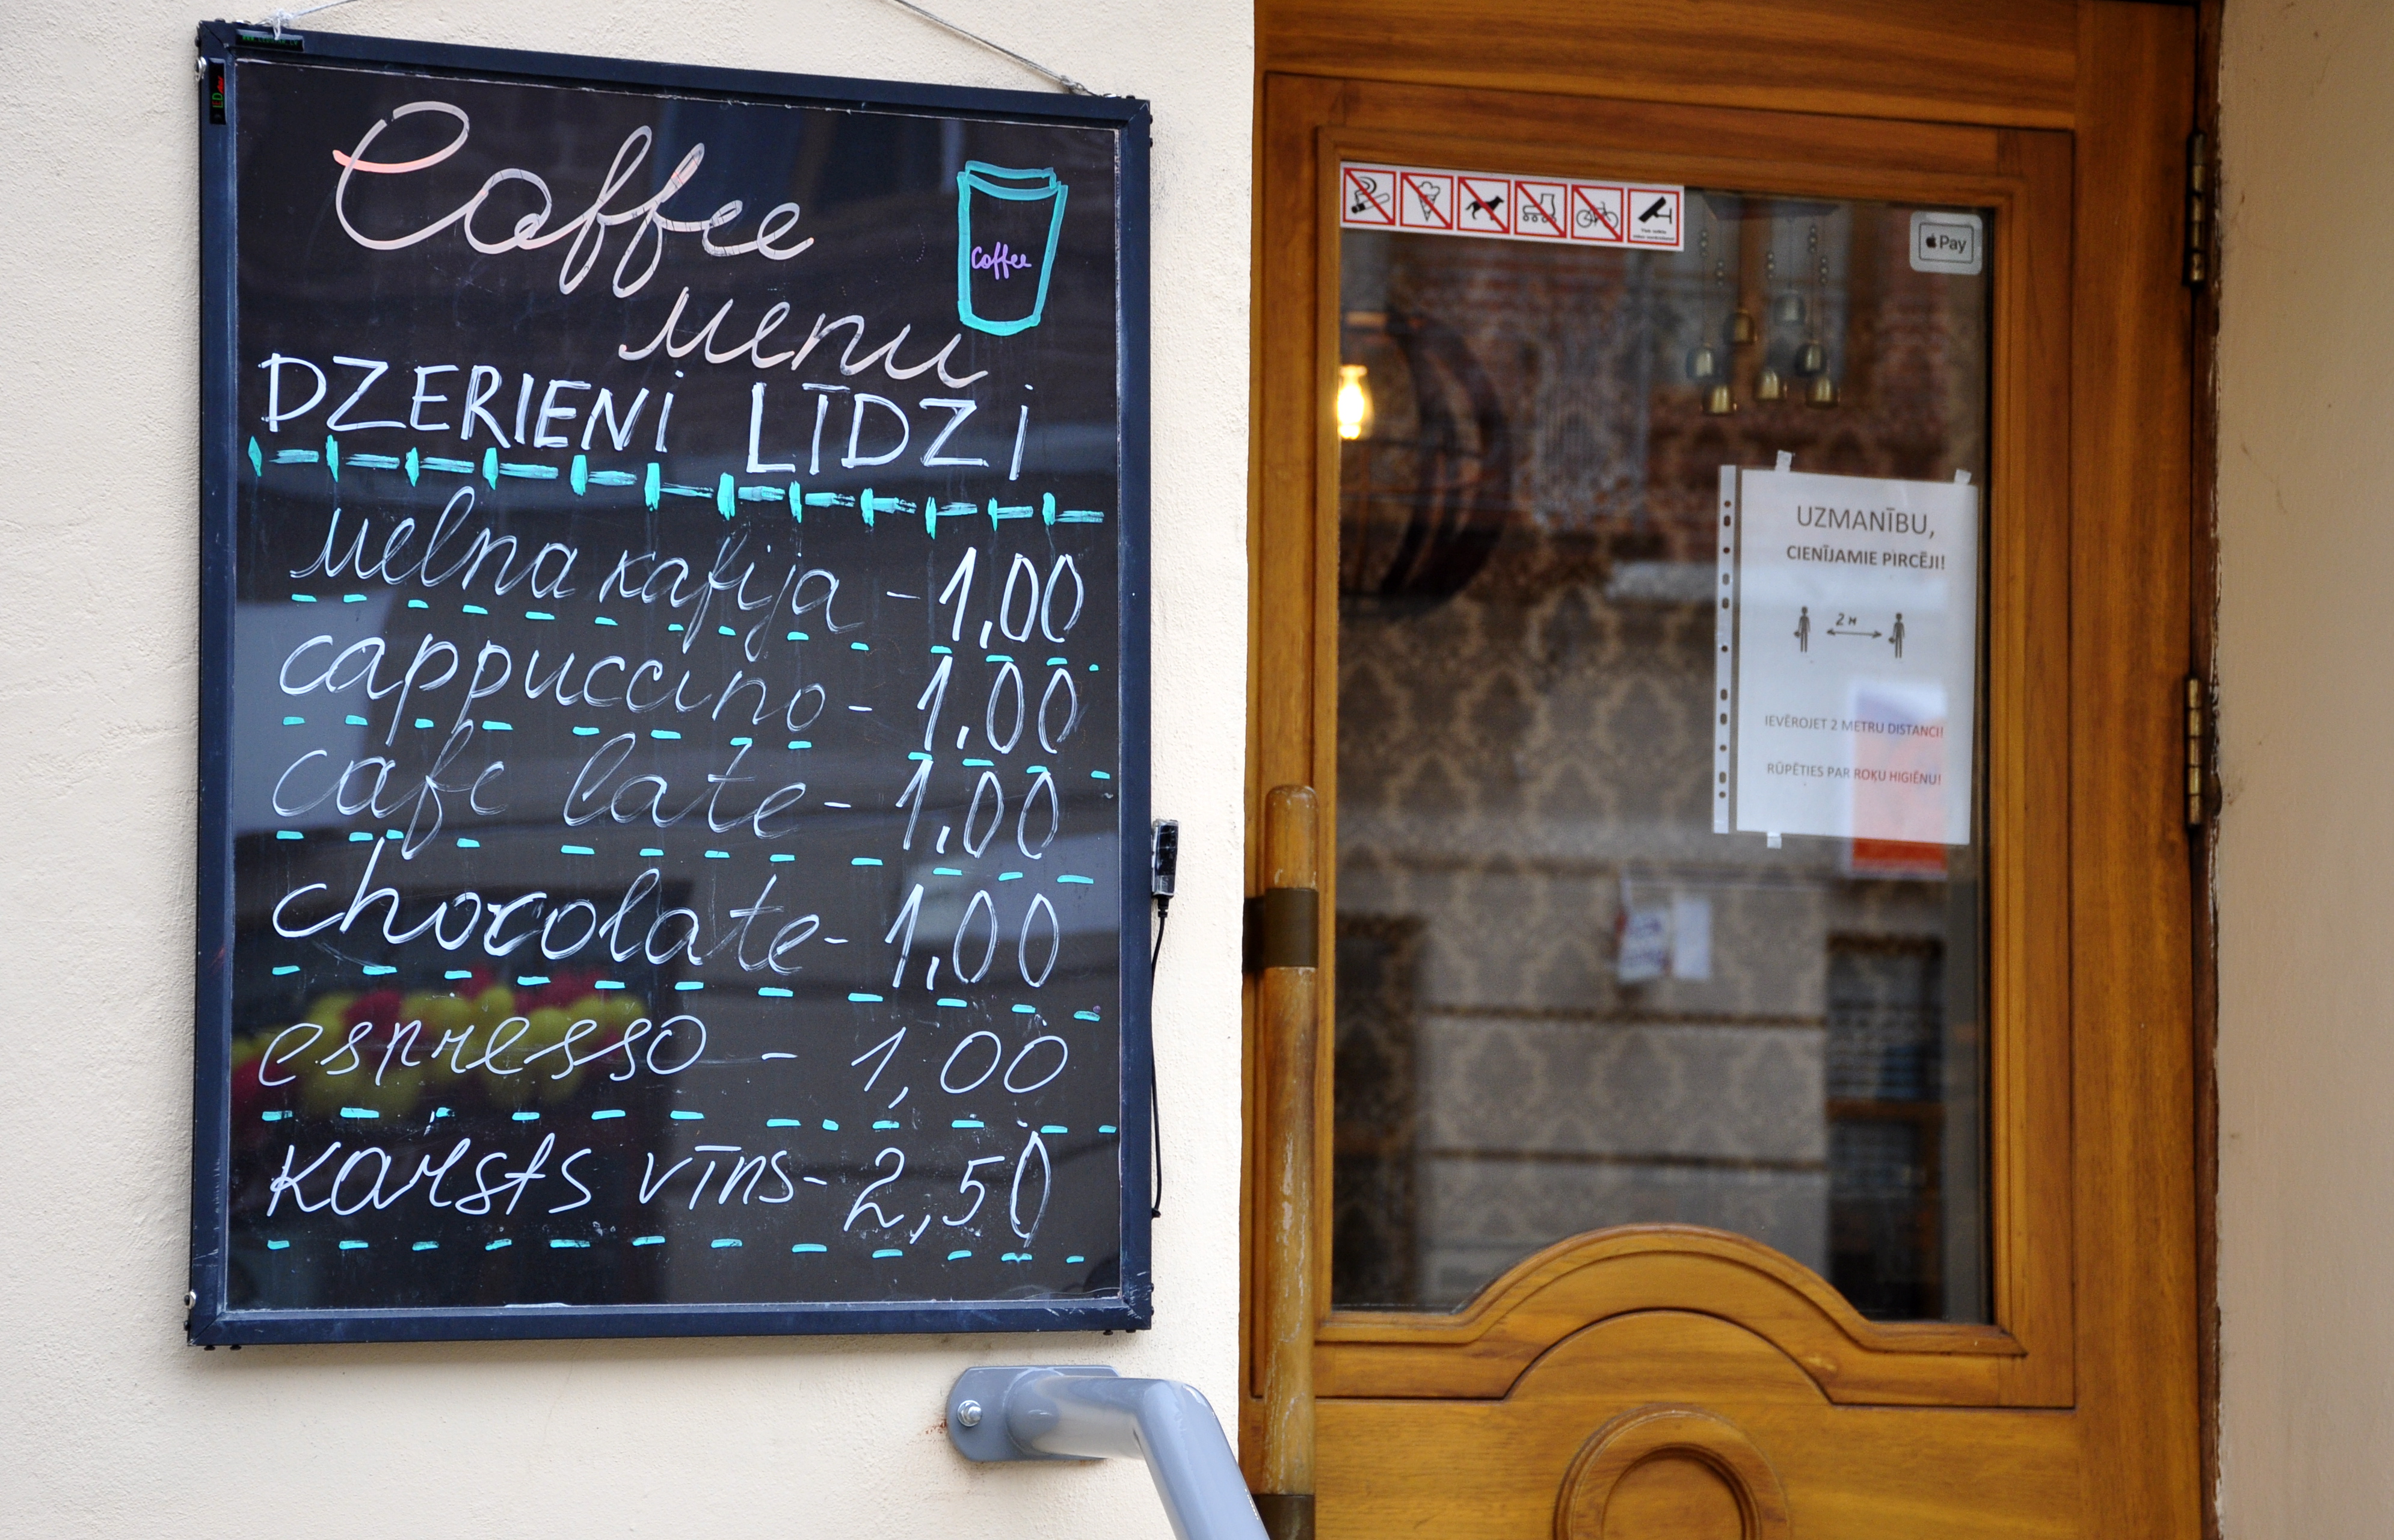 Coffee
menu
coffee
DZERIENI LĪDZI
melna kafija - 1,00
cappuccino - 1,00
cafe late - 1,00
chocolate - 1,00
espresso - 1,00
karsts vīns - 2,50
Pay
UZMANĪBU,
CIENĪJAMIE PIRCĒJI!
2 м
IEVĒROJET 2 METRU DISTANCI!
RŪPĒTIES PAR ROĶU HIGIĒNU!